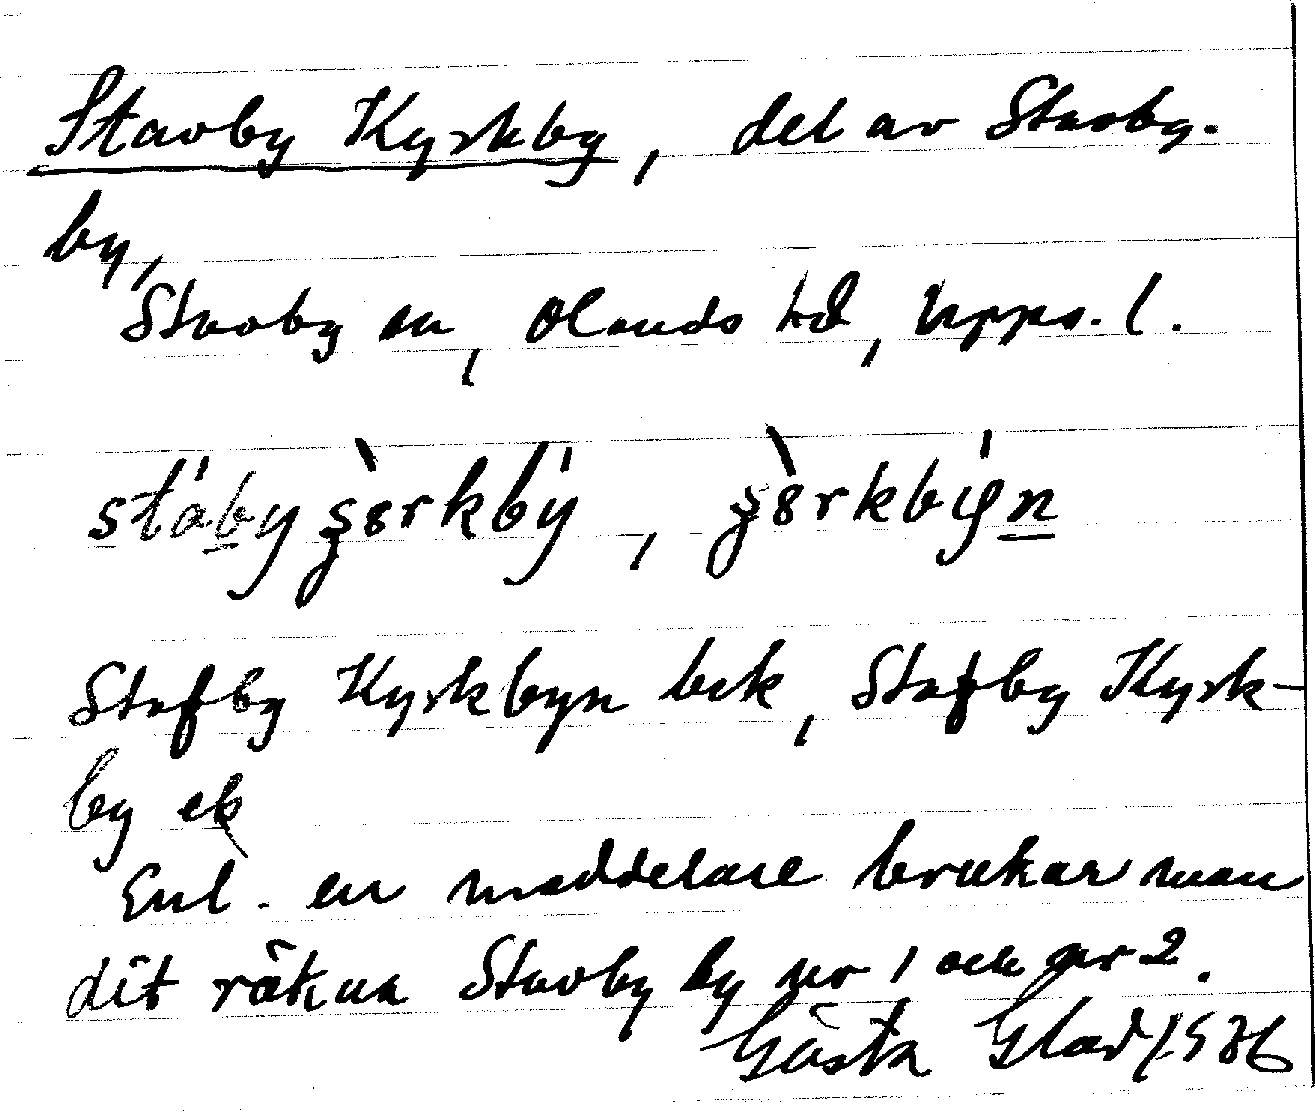 Stavby Kyrkby, del av Stavby.
by,
Stavby sn, Olands hd, Upps. l.
Stafby Kyrkbyn bek, Stafby Kyrk-
by ek
Enl. en meddelare brukar man
dit räkna Stavby by nr 1 och nr 2.
Gösta Glad 1936